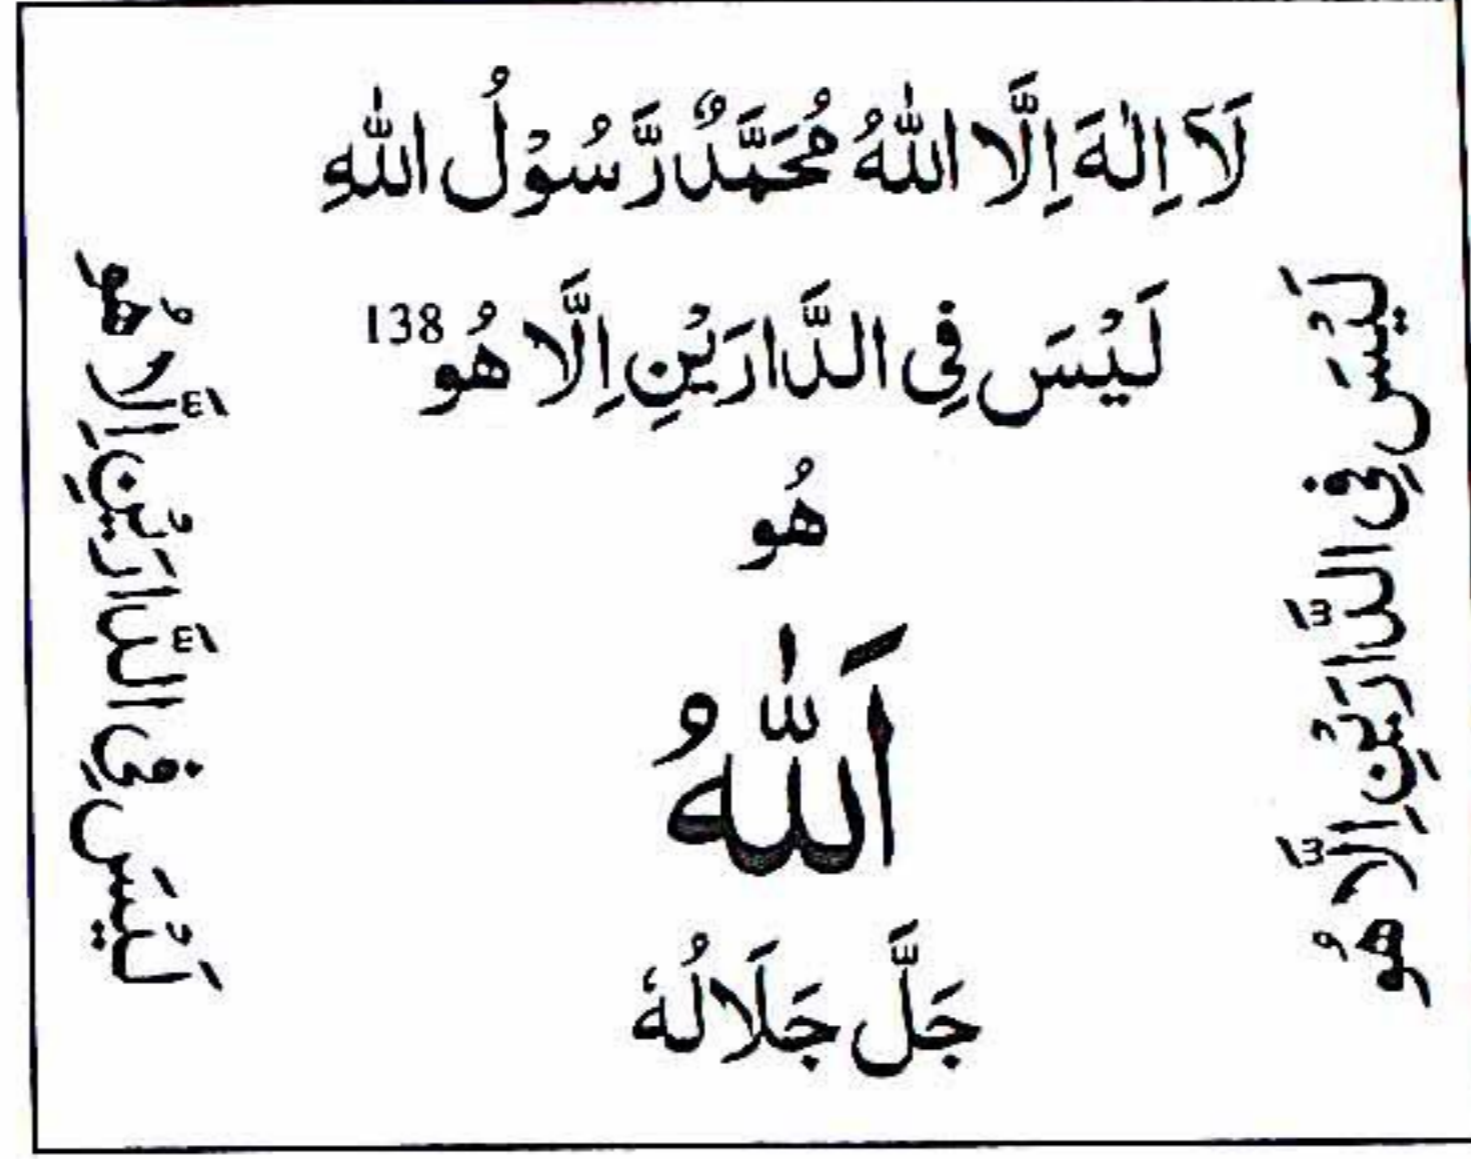 لَآ اِلٰهَ اِلَّا اللّٰهُ مُحَمَّدٌ رَّسُوْلُ اللّٰهِ
لَيْسَ فِى الدَّارَيْنِ اِلَّا هُو 138
هُو
اَللّٰهُ
جَلَّ جَلَالُهٗ
لَيْسَ فِى الدَّارَيْنِ اِلَّا هُو
لَيْسَ فِى الدَّارَيْنِ اِلَّا هُو